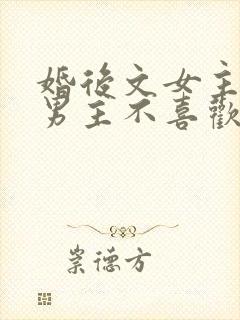 婚後文女主
男主不喜歡
崇德方